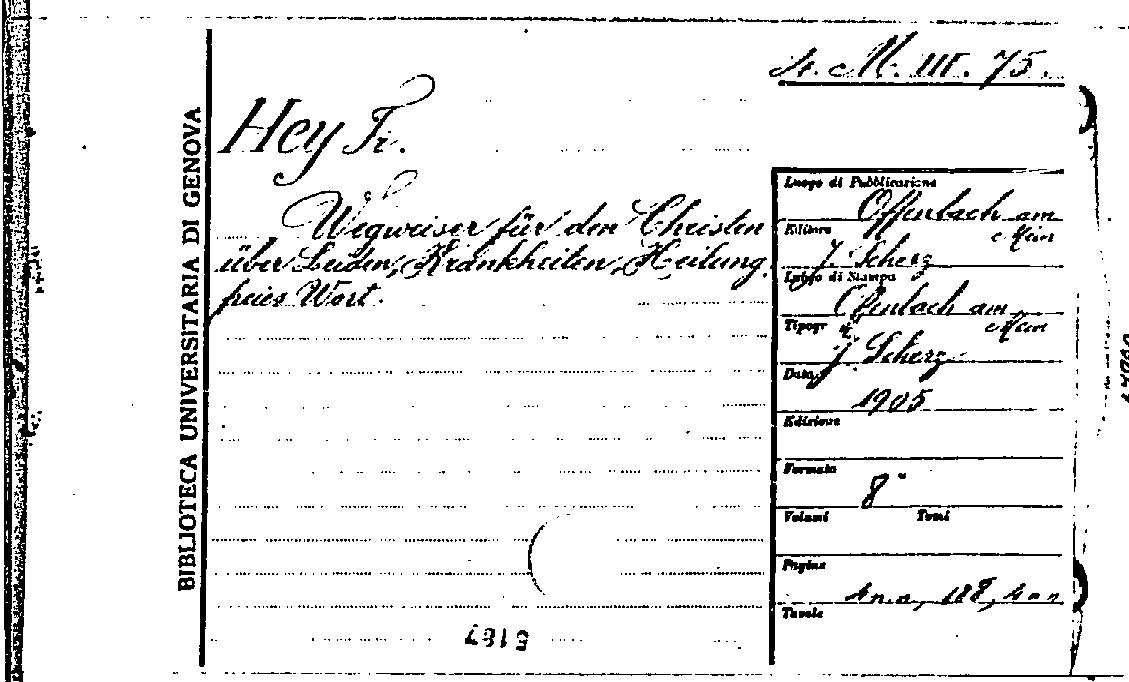 BIBLIOTECA UNIVERSITARIA DI GENOVA
M. III. 75.
Hey Fr.
Wegweiser für den Christen
über Leiden, Krankheiten, Heilung,
freies Wort.
Luogo di Pubblicazione
Offenbach am
Mein
Editore
J. Scherz
Luogo di Stampa
Offenbach am
Mein
Tipogr
J. Scherz
Data
1905
Edizione
Formato
8°
Volumi Tomi
Pagine
4 n.n., 188, 4 n n
Tavole
5187